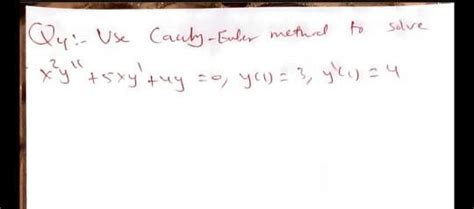 Q4:- Use Cacuhy-Euler method to solve
x²y'' + 5xy' + 4y = 0, y(1) = 3, y'(1) = 4